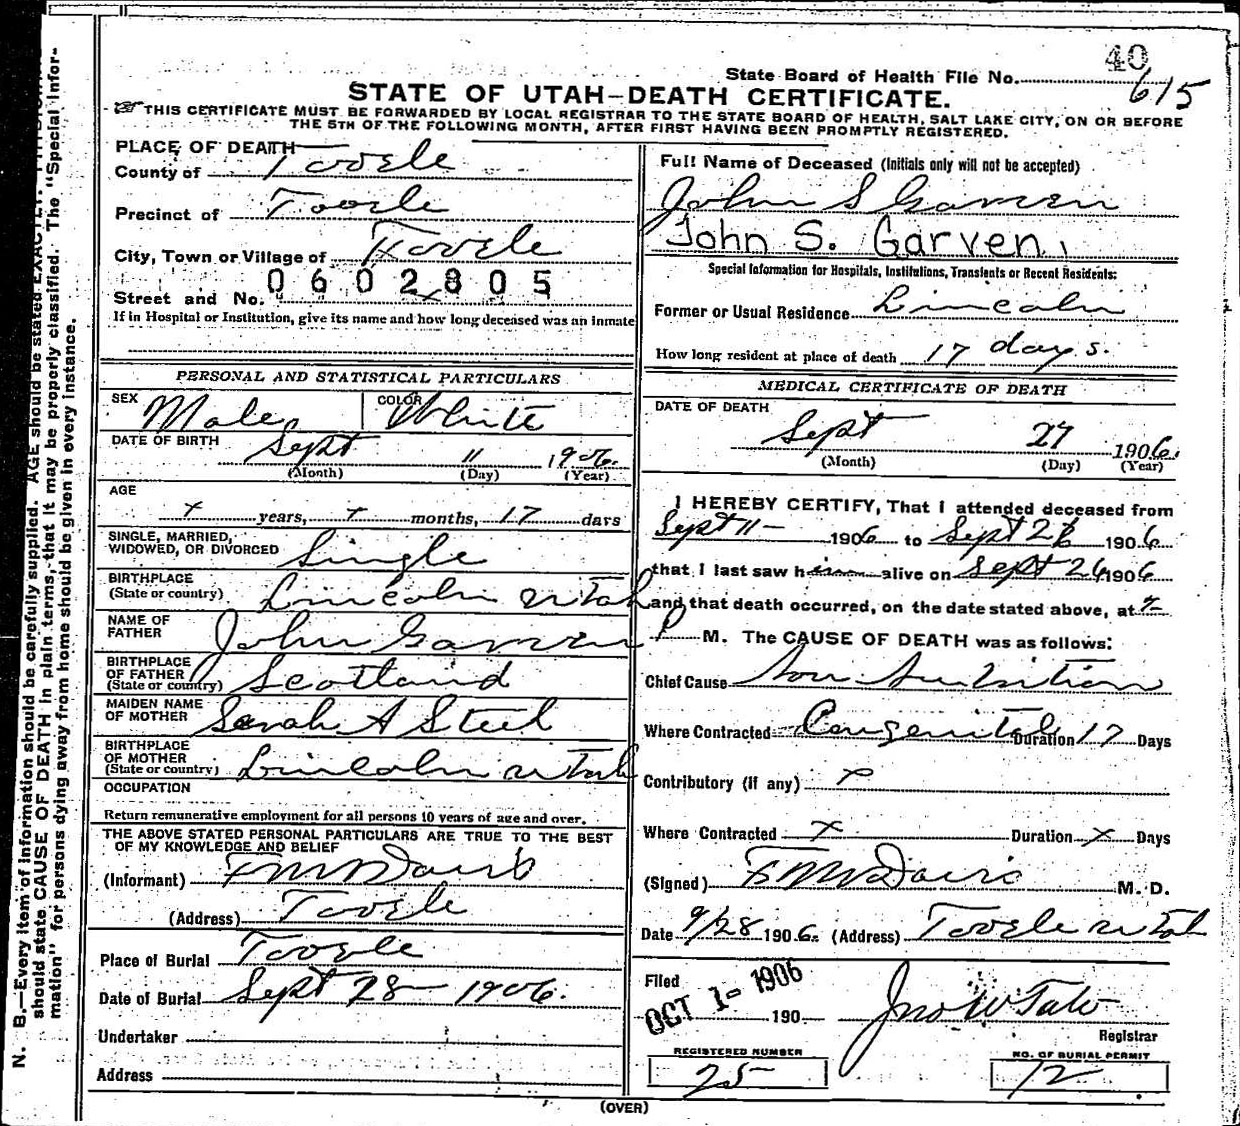 40
State Board of Health File No. 615
STATE OF UTAH—DEATH CERTIFICATE.
THIS CERTIFICATE MUST BE FORWARDED BY LOCAL REGISTRAR TO THE STATE BOARD OF HEALTH, SALT LAKE CITY, ON OR BEFORE
THE 5TH OF THE FOLLOWING MONTH, AFTER FIRST HAVING BEEN PROMPTLY REGISTERED.
PLACE OF DEATH
County of Tooele
Precinct of Tooele
City, Town or Village of Tooele
0602805
Street and No. x
If in Hospital or Institution, give its name and how long deceased was an inmate
PERSONAL AND STATISTICAL PARTICULARS
SEX Male COLOR White
DATE OF BIRTH Sept 11 1906
(Month) (Day) (Year)
AGE
x years, x months, 17 days
SINGLE, MARRIED,
WIDOWED, OR DIVORCED Single
BIRTHPLACE
(State or country) Lincoln Utah
NAME OF
FATHER John Garven
BIRTHPLACE
OF FATHER
(State or country) Scotland
MAIDEN NAME
OF MOTHER Sarah A Steel
BIRTHPLACE
OF MOTHER
(State or country) Lincoln Utah
OCCUPATION
Return remunerative employment for all persons 10 years of age and over.
THE ABOVE STATED PERSONAL PARTICULARS ARE TRUE TO THE BEST
OF MY KNOWLEDGE AND BELIEF
(Informant) F M Davis
(Address) Tooele
Place of Burial Tooele
Date of Burial Sept 28 1906.
Undertaker
Address
Full Name of Deceased (Initials only will not be accepted)
John S Garven
John S. Garven
Special Information for Hospitals, Institutions, Transients or Recent Residents:
Former or Usual Residence Lincoln
How long resident at place of death 17 days.
MEDICAL CERTIFICATE OF DEATH
DATE OF DEATH
Sept 27 1906.
(Month) (Day) (Year)
I HEREBY CERTIFY, That I attended deceased from
Sept 11 1906 to Sept 26 1906
that I last saw him alive on Sept 26 1906
and that death occurred, on the date stated above, at
P M. The CAUSE OF DEATH was as follows:
Chief Cause Non Nutrition
Where Contracted Congenital Duration 17 Days
Contributory (if any) x
Where Contracted x Duration x Days
(Signed) F M Davis M. D.
Date 9/28 1906. (Address) Tooele Utah
Filed
OCT 1- 1906
190 Jno W Tate
Registrar
REGISTERED NUMBER
25
NO. OF BURIAL PERMIT
12
(OVER)
N. B.—Every item of information should be carefully supplied. AGE should be stated EXACTLY.
should state CAUSE OF DEATH in plain terms, that it may be properly classified. The "Special Infor-
mation" for persons dying away from home should be given in every instance.